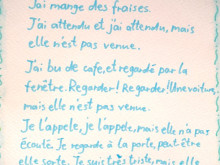 J'ai mange des fraises.
J'ai attendu et j'ai attendu, mais
elle n'est pas venue.
J'ai bu de cafe, et regardé par la
fenêtre. Regarder! Regarder! Une voiture,
mais elle n'est pas venue.
Je l'appele, je l'appele, mais elle n'a pas
Écouté. Je regarde à la porte, peut être
elle sorte. Je suis très triste, mais elle